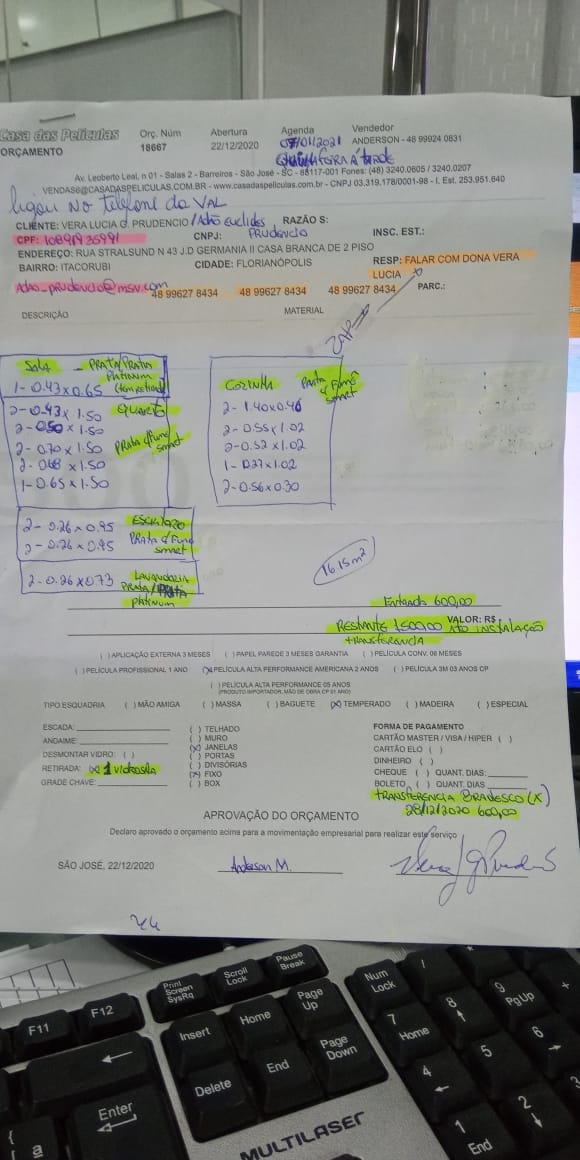 Casa das Películas
ORÇAMENTO
Orç. Núm
18667
Abertura
22/12/2020
Agenda
07/01/2021
QUINTA FEIRA Á TARDE
Vendedor
ANDERSON - 48 99924 0831
Av. Leoberto Leal, n 01 - Salas 2 - Barreiros - São José - SC - 88117-001 Fones: (48) 3240.0605 / 3240.0207
VENDAS6@CASADASPELICULAS.COM.BR - www.casadaspeliculas.com.br - CNPJ 03.319.178/0001-98 - I. Est. 253.951.640
ligou NO telefone da VAL
CLIENTE: VERA LUCIA G. PRUDENCIO / Adão Euclides Prudencio RAZÃO S:
CPF: CNPJ: INSC. EST.:
ENDEREÇO: RUA STRALSUND N 43 J.D GERMANIA II CASA BRANCA DE 2 PISO
BAIRRO: ITACORUBI CIDADE: FLORIANÓPOLIS RESP: FALAR COM DONA VERA LUCIA
Adao_prudencio@msn.com 48 99627 8434 48 99627 8434 48 99627 8434 PARC.:
DESCRIÇÃO MATERIAL
ZAP
Sala - PRATA/PRATA PLATINUM
1- 0.43x0.65
2- 0.43x1.50 QUARTO
2- 0.50x1.50
2- 0.70x1.50 PRATA c/ Fumê smart
2- 0.68x1.50
1- 0.65x1.50
COZINHA Prata c/ Fumê smart
2- 1.40x0.46
2- 0.55x1.02
2- 0.52x1.02
1- 0.27x1.02
2- 0.56x0.30
2- 0.26x0.95 ESCRITORIO
2- 0.26x0.95 PRATA c/ Fumê smart
2- 0.26x0.73 LAVANDERIA PRATA/PRATA platinum
16.15m²
Entrada 600,00
VALOR: R$
RESTANTE 1.500,00 ATO INSTALAÇÃO
TRANSFERENCIA
( ) APLICAÇÃO EXTERNA 3 MESES ( ) PAPEL PAREDE 3 MESES GARANTIA ( ) PELÍCULA CONV. 06 MESES
( ) PELÍCULA PROFISSIONAL 1 ANO (X) PELÍCULA ALTA PERFORMANCE AMERICANA 2 ANOS ( ) PELÍCULA 3M 03 ANOS CP
( ) PELÍCULA ALTA PERFORMANCE 05 ANOS
(PRODUTO IMPORTADOR, MÃO DE OBRA CP 01 ANO)
TIPO ESQUADRIA ( ) MÃO AMIGA ( ) MASSA ( ) BAGUETE (X) TEMPERADO ( ) MADEIRA ( ) ESPECIAL
ESCADA:
ANDAIME:
DESMONTAR VIDRO: ( )
RETIRADA: (X) 1 vidro sala
GRADE CHAVE:
( ) TELHADO
( ) MURO
(X) JANELAS
( ) PORTAS
( ) DIVISÓRIAS
(X) FIXO
( ) BOX
FORMA DE PAGAMENTO
CARTÃO MASTER / VISA / HIPER ( )
CARTÃO ELO ( )
DINHEIRO ( )
CHEQUE ( ) QUANT. DIAS:
BOLETO ( ) QUANT. DIAS
TRANSFERENCIA BRADESCO (X)
28/12/2020 600,00
APROVAÇÃO DO ORÇAMENTO
Declaro aprovado o orçamento acima para a movimentação empresarial para realizar este serviço
SÃO JOSÉ, 22/12/2020
Anderson M.
F11
F12
Print Screen SysRq
Scroll Lock
Pause Break
Insert
Home
Page Up
Delete
End
Page Down
Num Lock
/
7 Home
8
9 PgUp
+
4
5
6
1 End
2
Enter
{
ª
MULTILASER